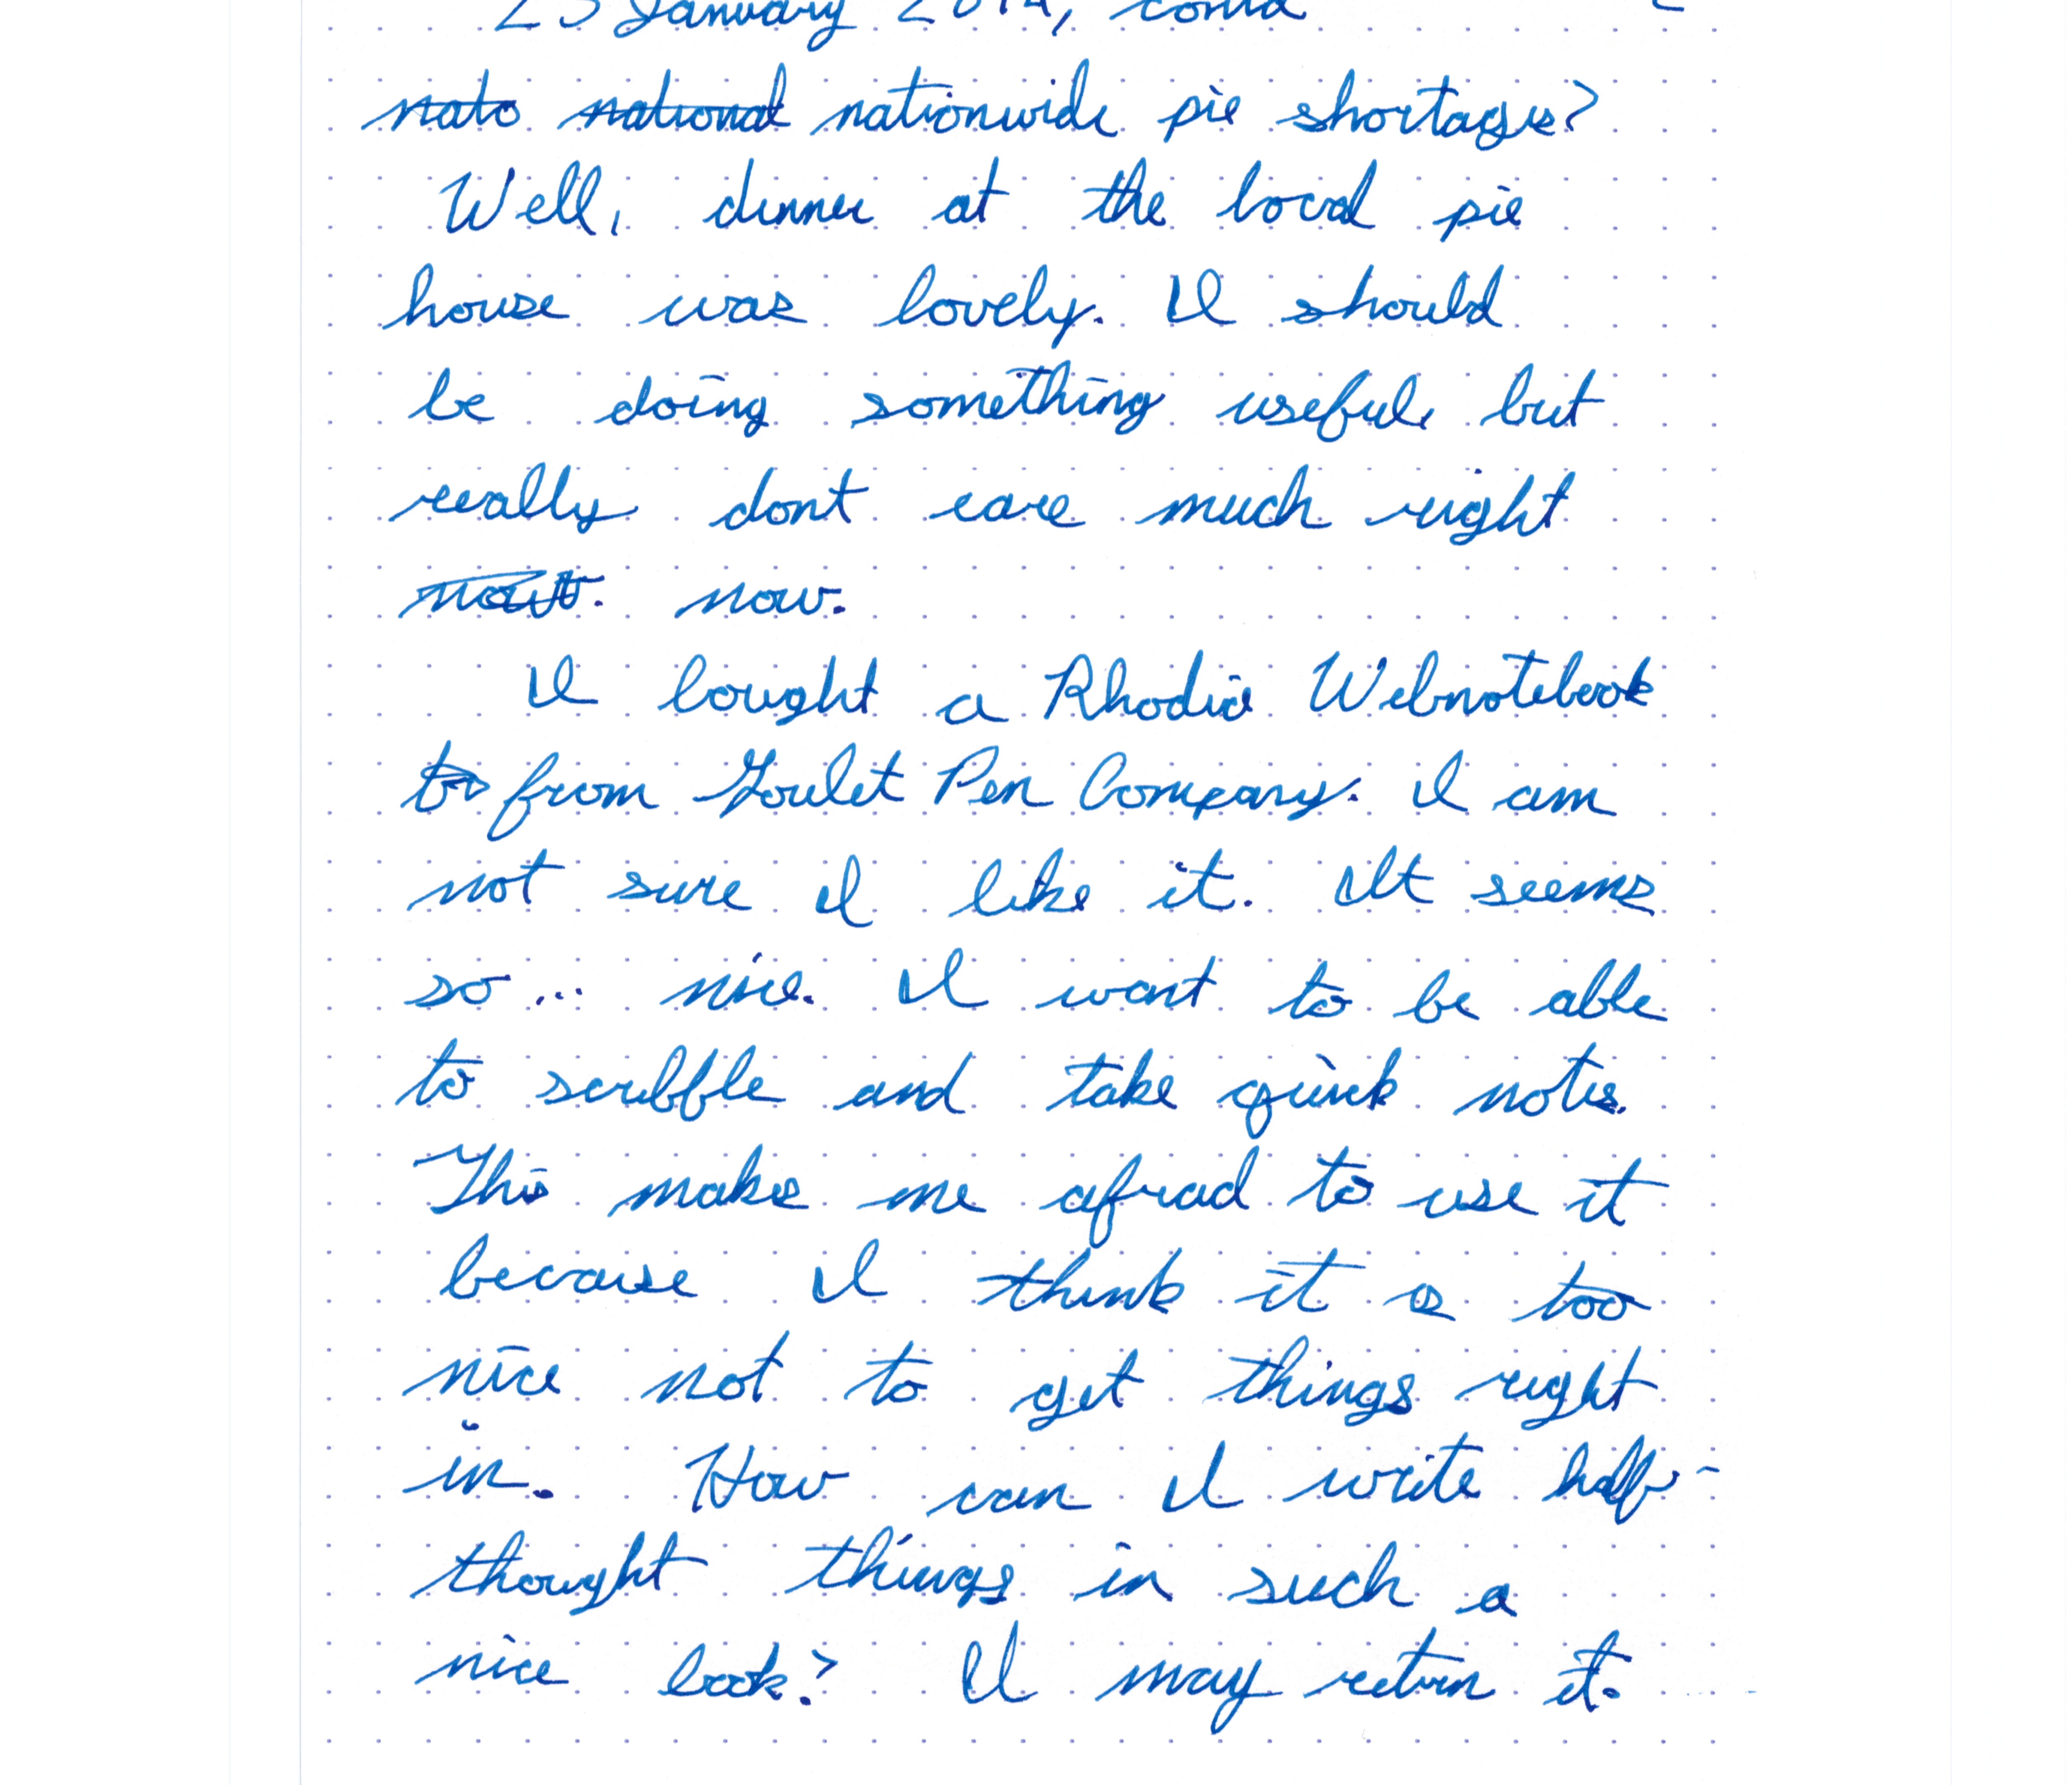 23 January 2014, contd
nato national nationwide pie shortages?
Well, dinner at the local pie
house was lovely. I should
be doing something useful, but
really dont care much right
now. now.
I bought a Rhodia Webnotebook
to from Goulet Pen Company. I am
not sure I like it. It seems
so... nice. I want to be able
to scribble and take quick notes.
This makes me afraid to use it
because I think it is too
nice not to get things right
in. How can I write half-
thought things in such a
nice book? I may return it.